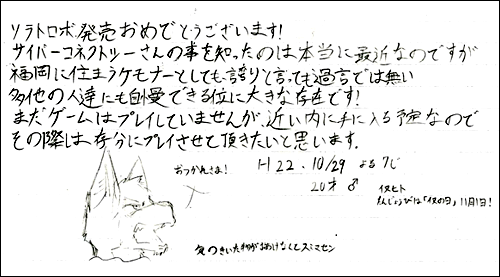 ソラトロボ発売おめでとうございます!
サイバーコネクトツーさんの事を知ったのは本当に最近なのですが
福岡に住まうケモナーとしても誇りと言っても過言では無い
多他の人達にも自慢できる位に大きな存在です!
まだゲームはプレイしていませんが、近い内に手に入る予定なので
その際は、存分にプレイさせて頂きたいと思います。
おつかれさま!
H22.10/29 よる7じ
20才 ♂
イヌヒト
たんじょうびは「イヌの日」11月1日!
気のきいた物がおめけなくてスミマセン